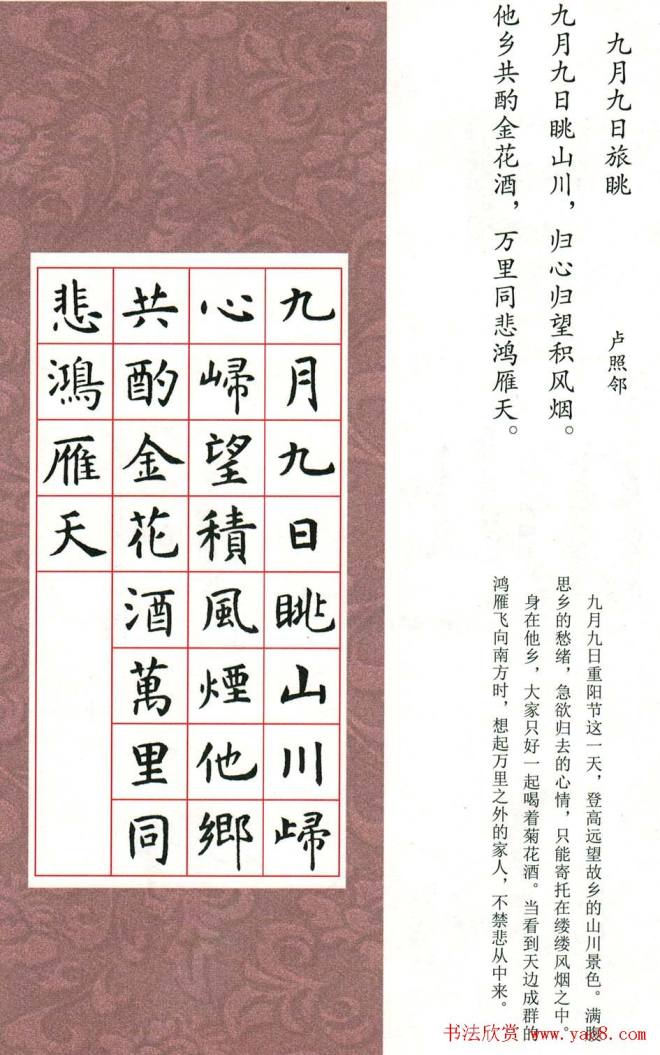 九月九日旅眺
卢照邻
九月九日眺山川，归心归望积风烟。
他乡共酌金花酒，万里同悲鸿雁天。
九月九日重阳节这一天，登高远望故乡的山川景色。满腹
思乡的愁绪，急欲归去的心情，只能寄托在缕缕风烟之中。
身在他乡，大家只好一起喝着菊花酒。当看到天边成群的
鸿雁飞向南方时，想起万里之外的家人，不禁悲从中来。
九月九日眺山川歸
心歸望積風煙他鄉
共酌金花酒萬里同
悲鴻雁天
书法欣赏 www.yac8.com